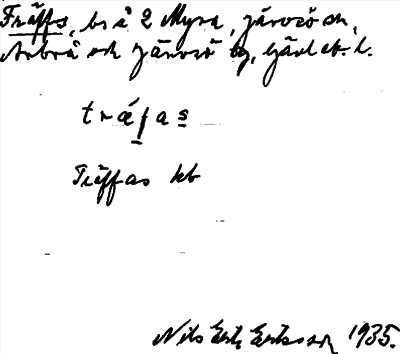 Träffs, br å 2 Myra, Järvsö sn,
Arbrå och Järvsö tg, Gävleb. l.
tráfas
Träffas kb
Nils Erik Eriksson 1935.